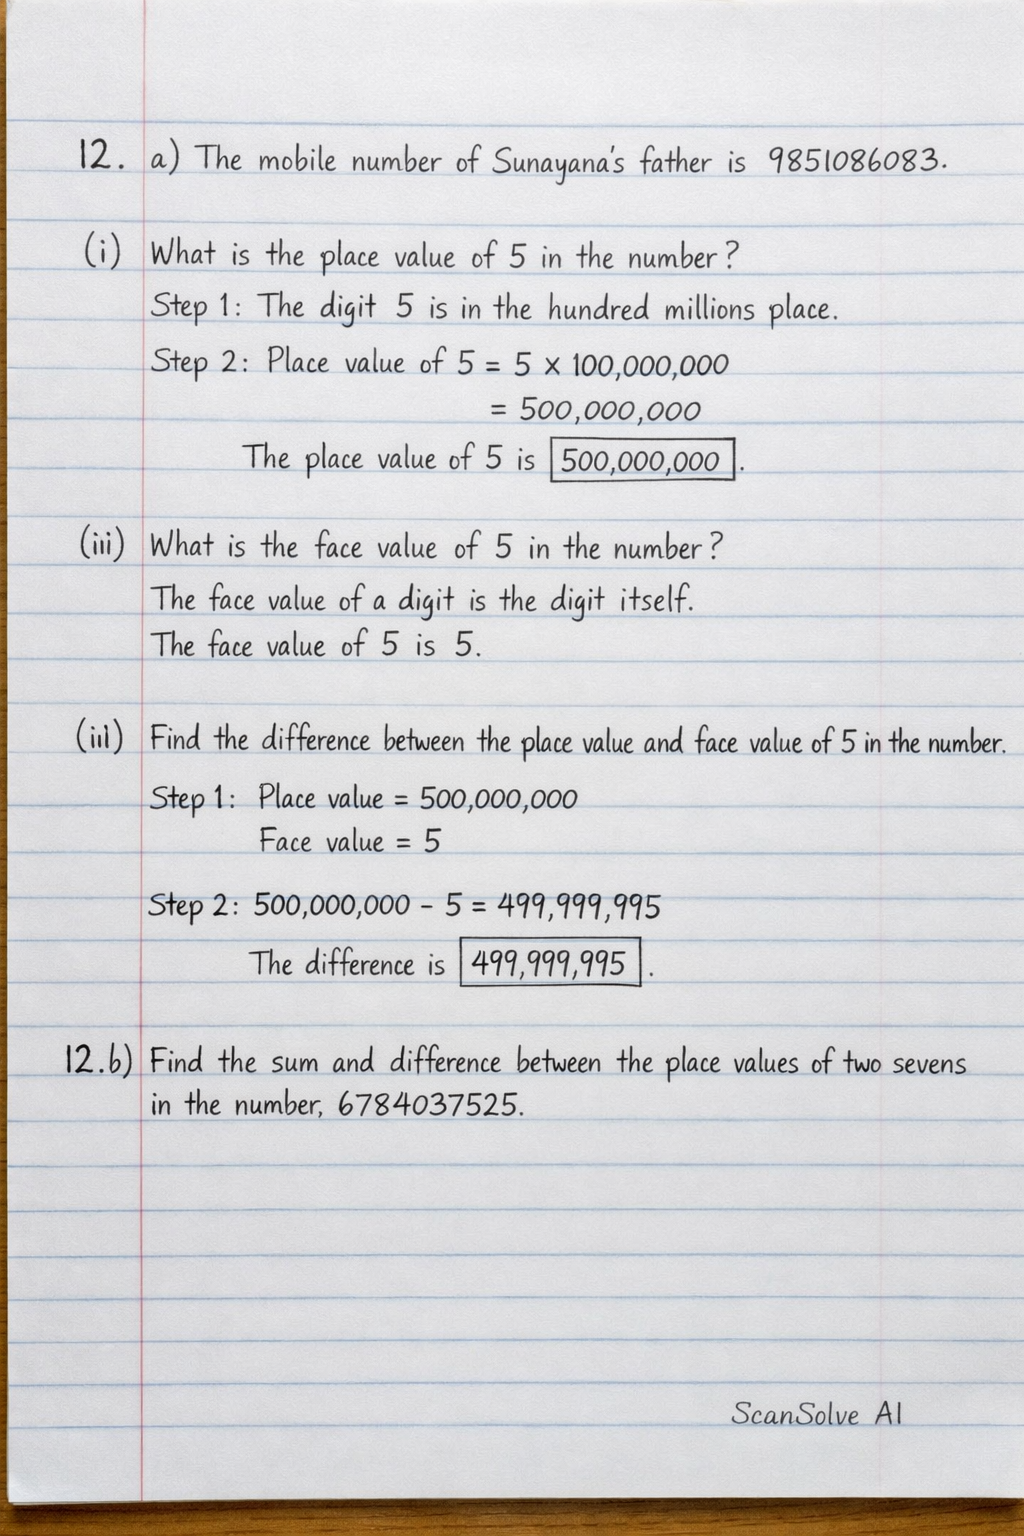 12. a) The mobile number of Sunayana's father is 9851086083.
(i) What is the place value of 5 in the number?
Step 1: The digit 5 is in the hundred millions place.
Step 2: Place value of 5 = 5 × 100,000,000
= 500,000,000
The place value of 5 is 500,000,000.
(iii) What is the face value of 5 in the number?
The face value of a digit is the digit itself.
The face value of 5 is 5.
(iii) Find the difference between the place value and face value of 5 in the number.
Step 1: Place value = 500,000,000
Face value = 5
Step 2: 500,000,000 - 5 = 499,999,995
The difference is 499,999,995.
12.b) Find the sum and difference between the place values of two sevens
in the number, 6784037525.
ScanSolve AI